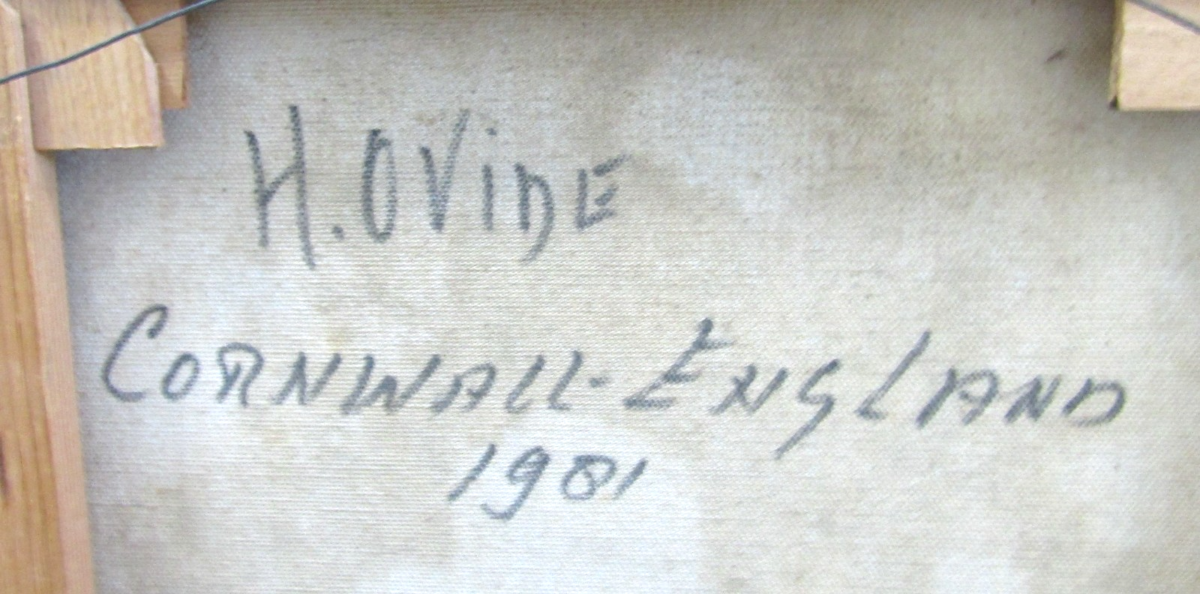 H. OViDE
CORNWALL - ENGLAND
1981